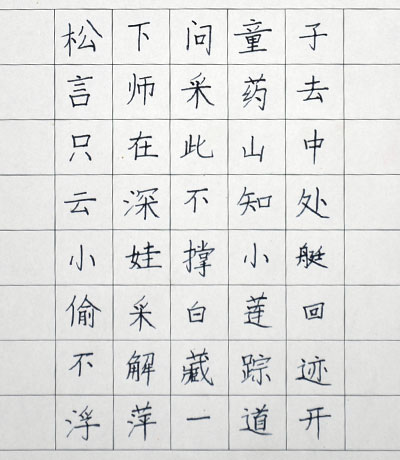 松下问童子
言师采药去
只在此山中
云深不知处
小娃撑小艇
偷采白莲回
不解藏踪迹
浮萍一道开